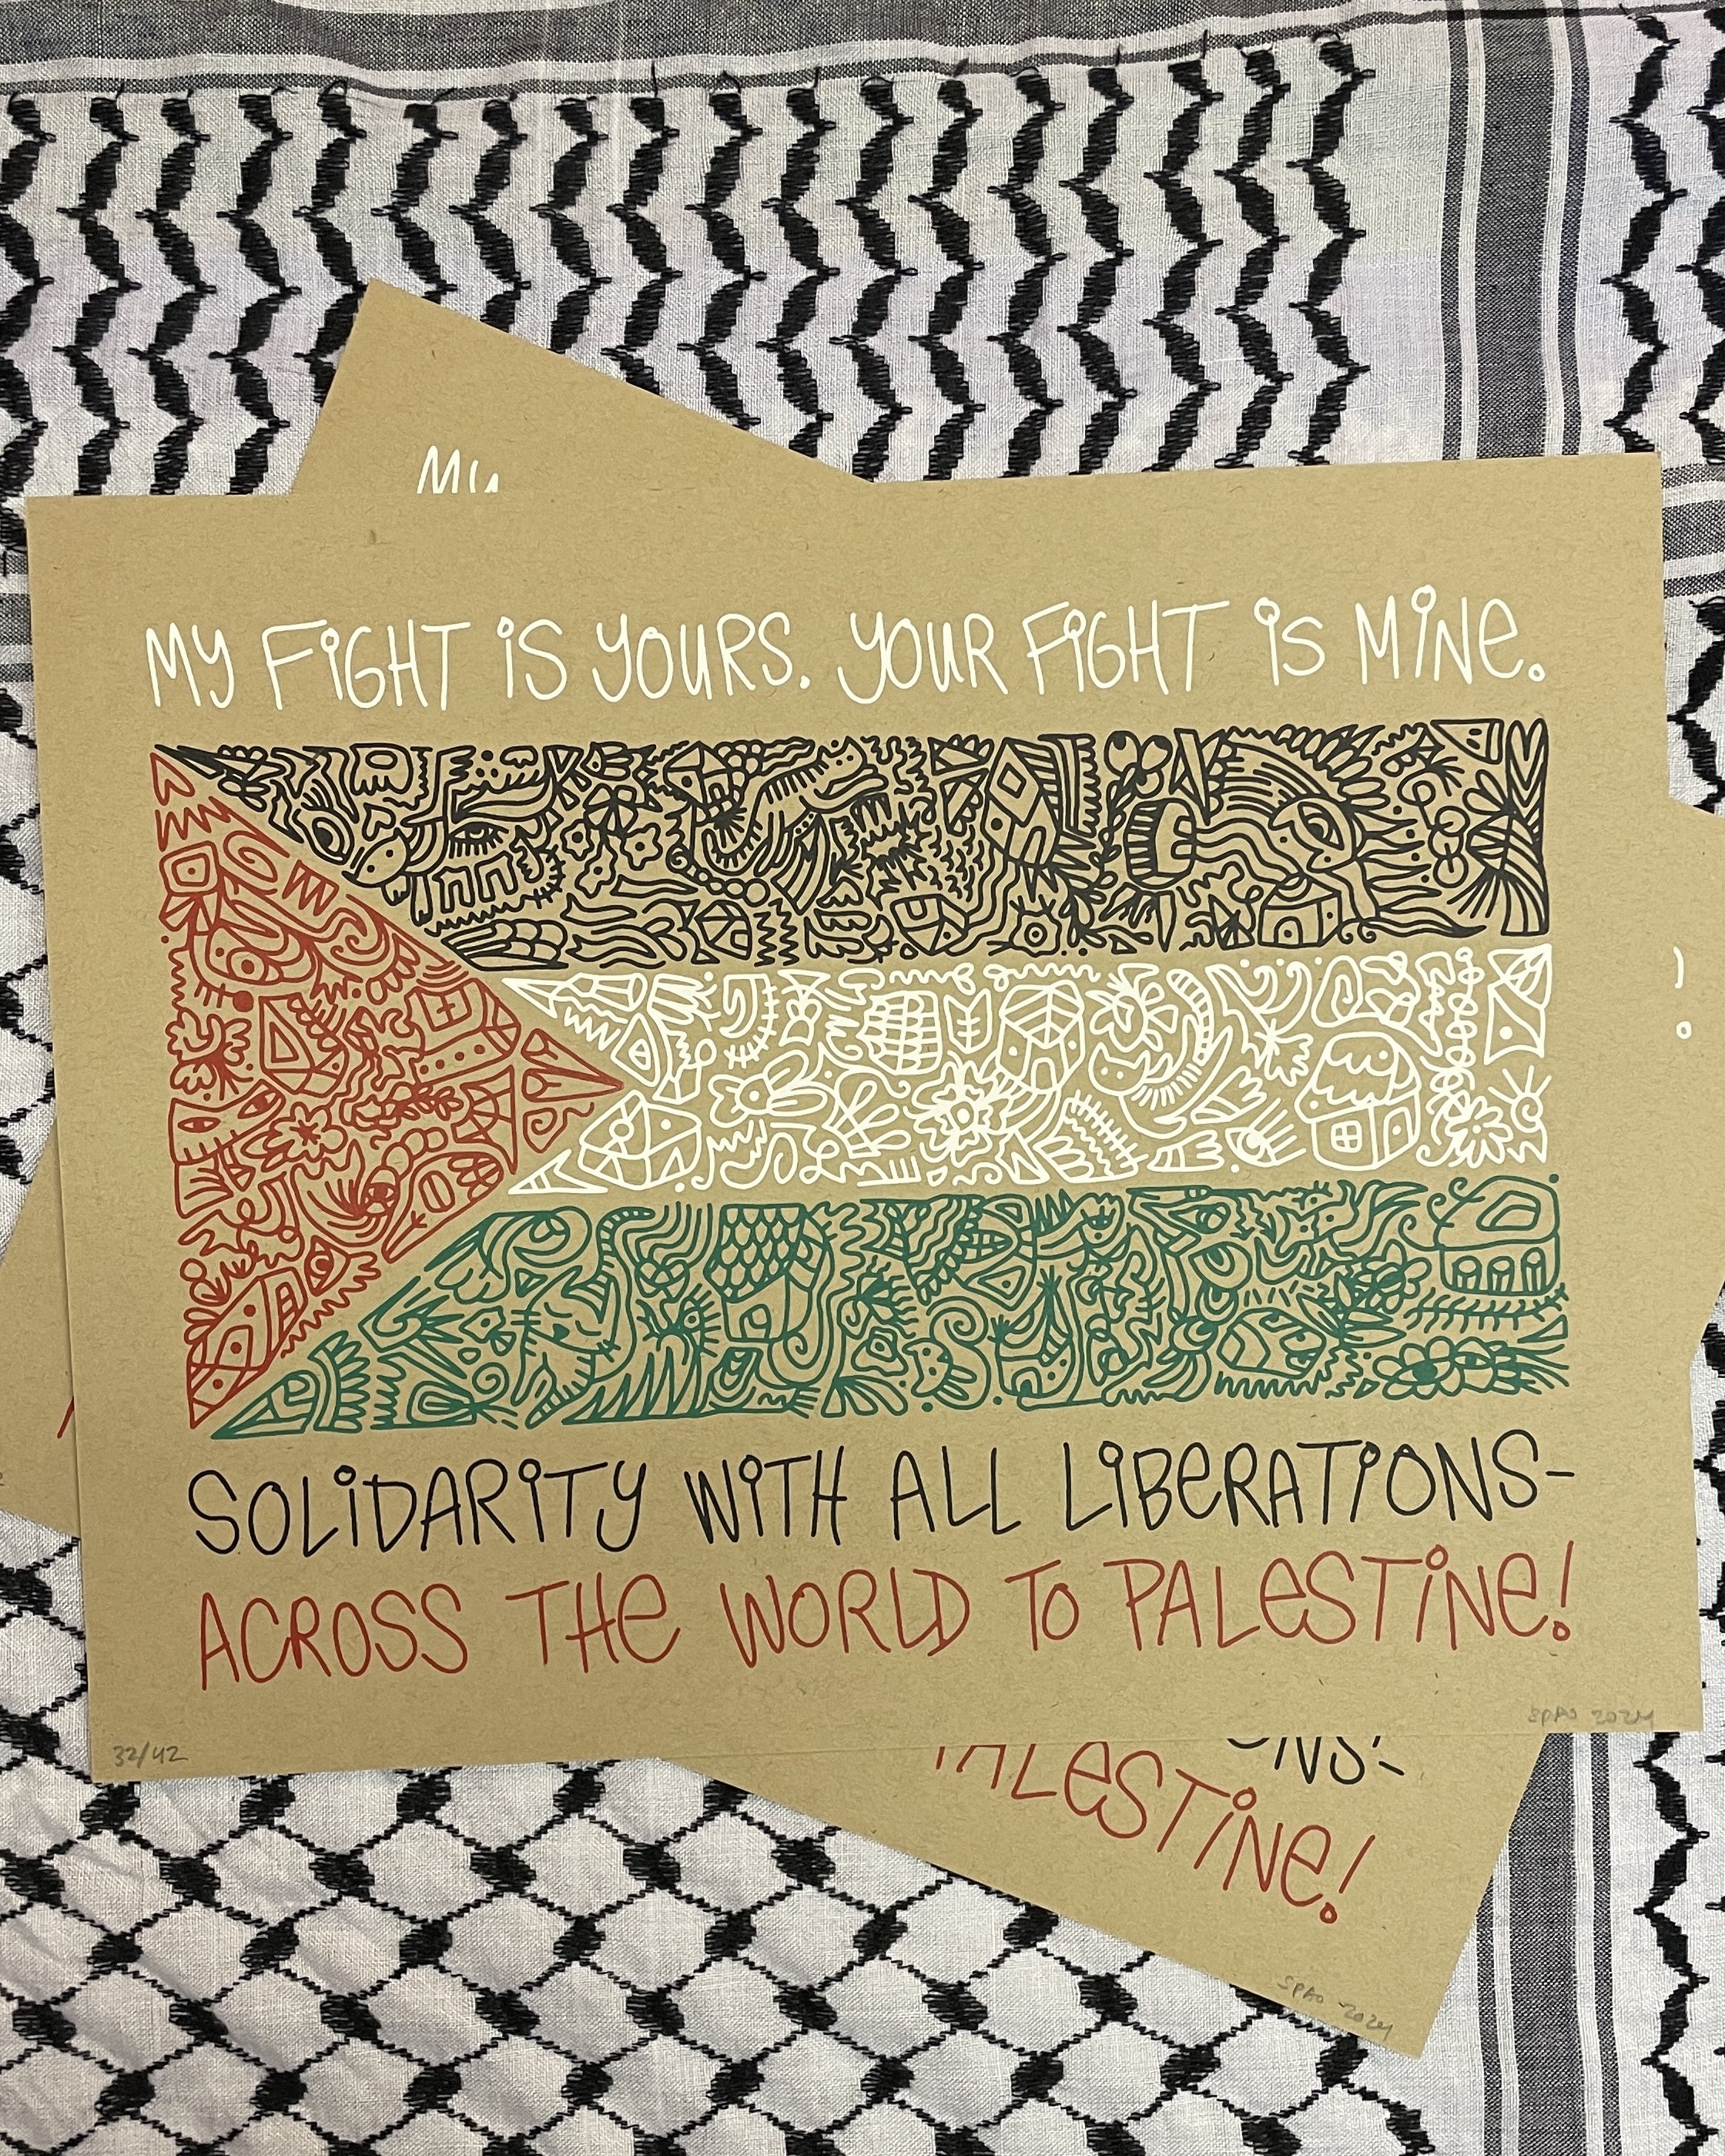 My
MY FiGHT iS yOURS. yOUR FiGHT iS MiNe.
SOLiDARiTy WiTH ALL LiBeRATiONS-
ACROSS THe WORLD To PALeSTiNe!
32/42
SPAO 2024
ONS-
PALeSTiNe!
SPAO 2024